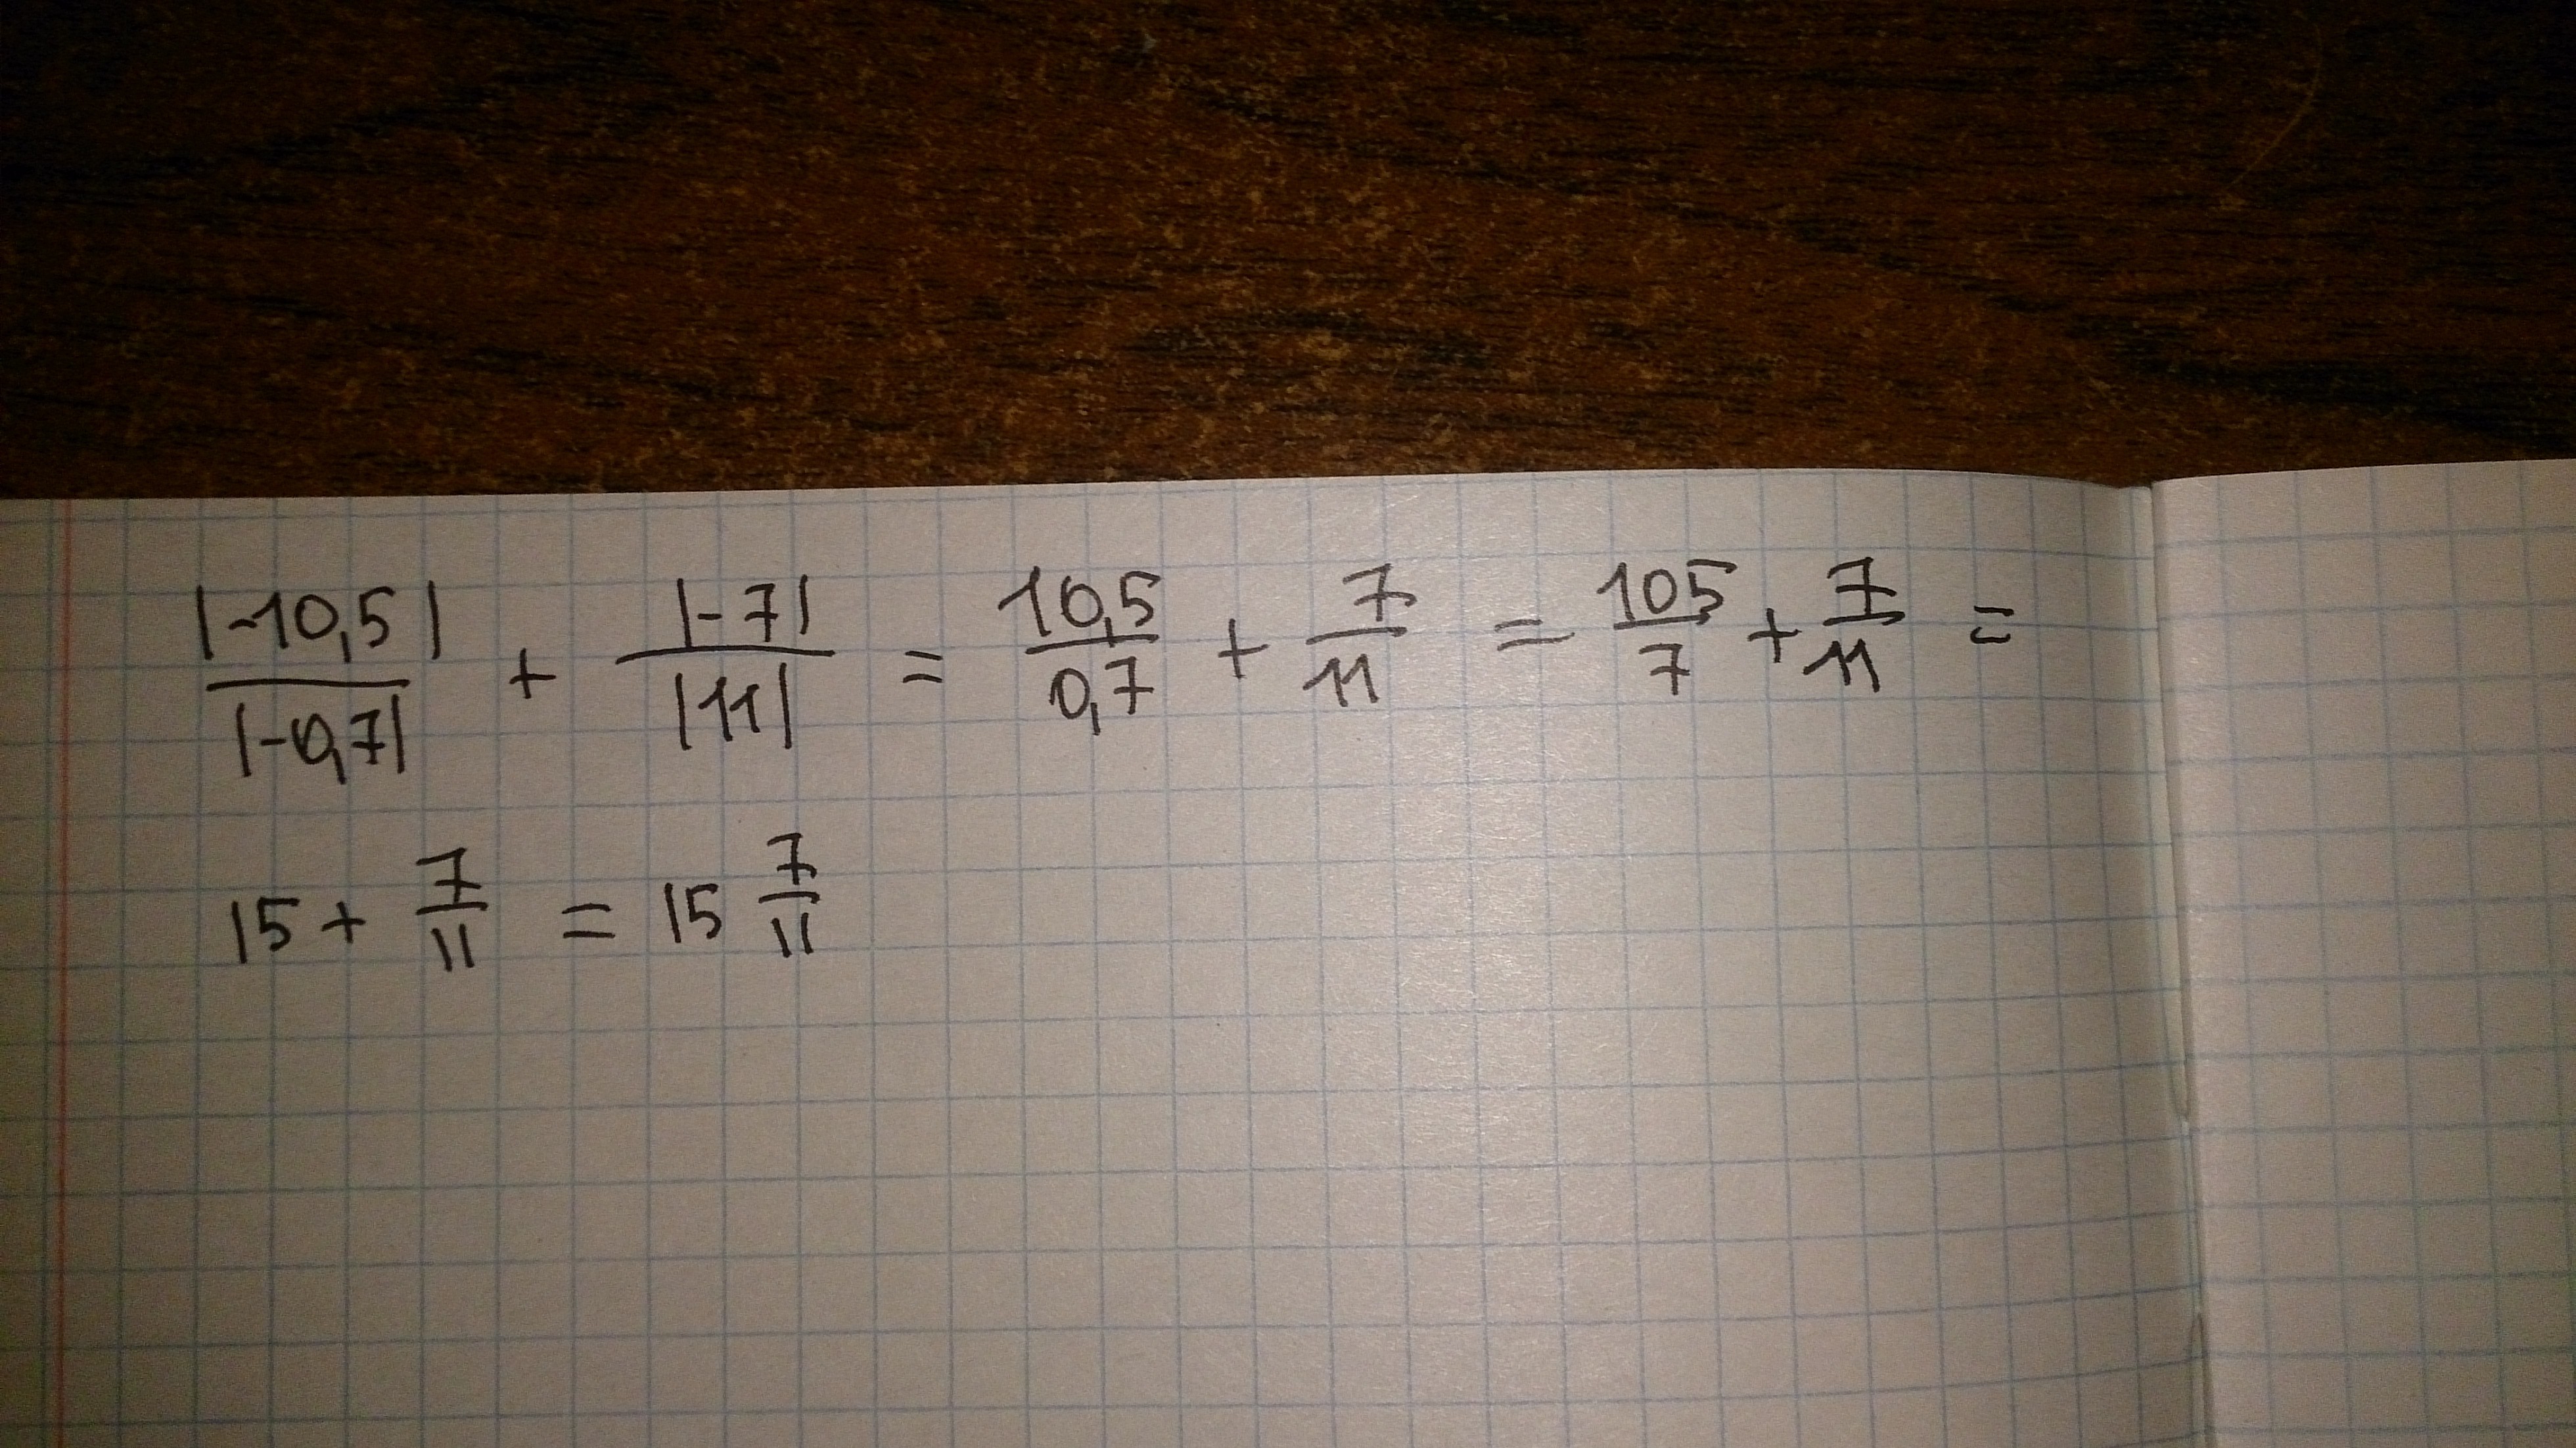 |-10,5|/|-0,7| + |-7|/|11| = 10,5/0,7 + 7/11 = 105/7 + 7/11 =
15 + 7/11 = 15 7/11